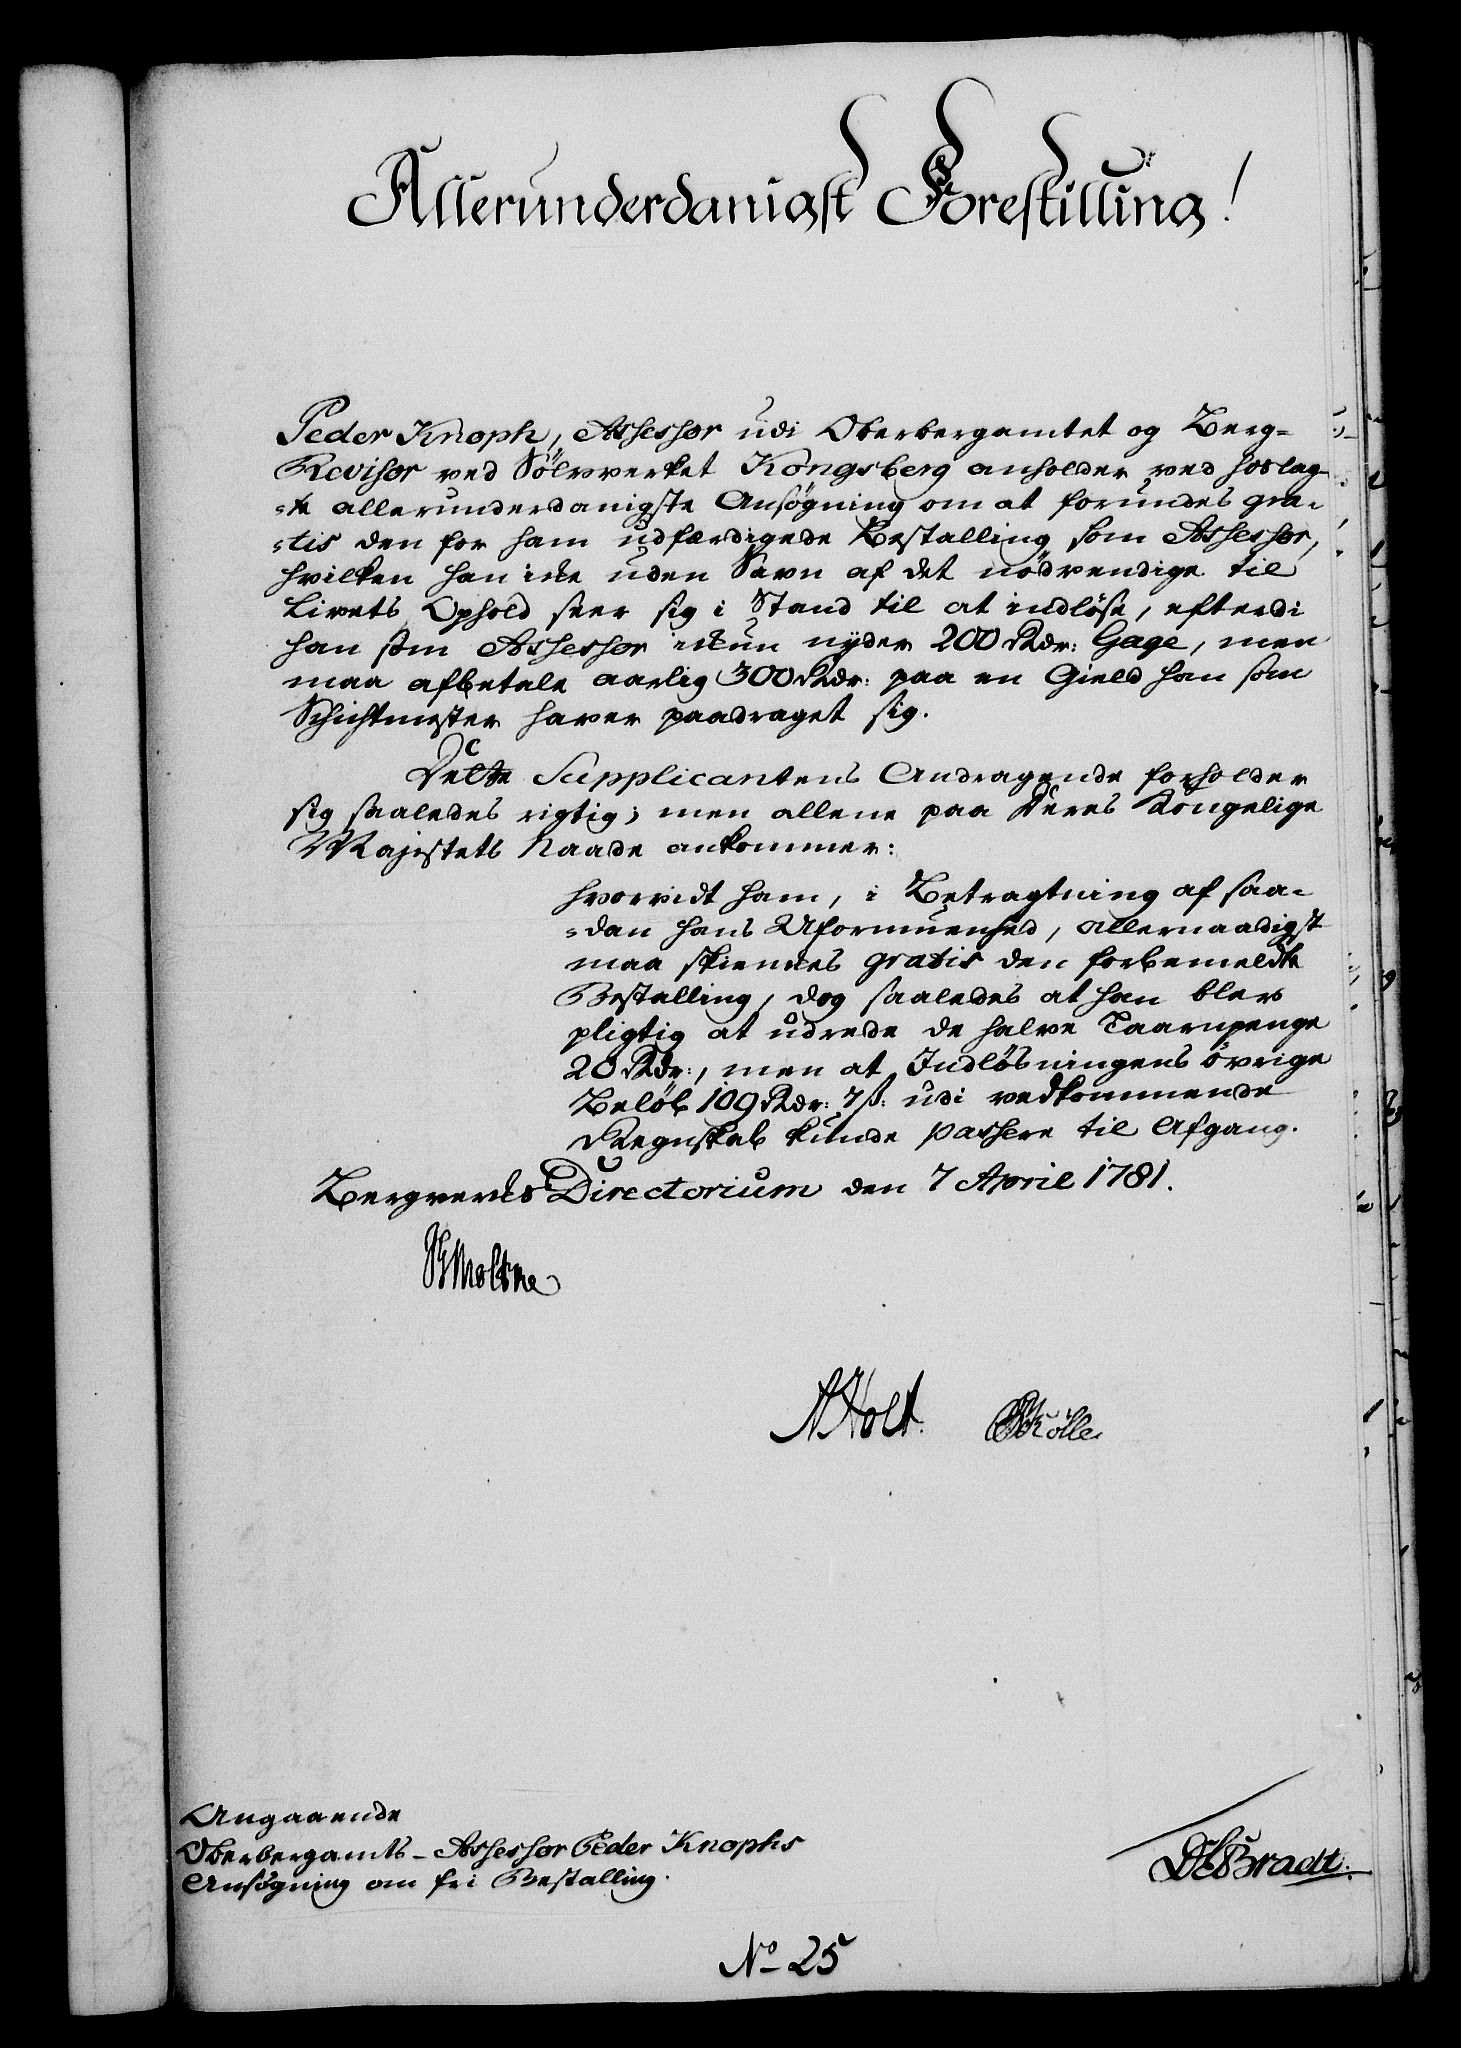 Allerunderdanigst Forestilling!
Peder Knoph, Assessor udi Oberbergamtet og Berg-
Revisor ved Sölvverket Kongsberg anholder ved hoslag-
-te allerunderdanigste Ansøgning om at forundes gra-
-tis den for ham udfærdigede Bestalling som Assessor,
hvilken han icke uden Savn af det nödvendige til
Livets Ophold seer sig i Stand til at indløse, efterdi
han som Assessor ickun nyder 200 Rdr: Gage, men
maa afbetale aarlig 300 Rdr: paa en Gield han som
Schichtmester haver paadraget sig.
Dette Supplicantens Andragende forholder
sig saaledes rigtig; men allene paa Deres Kongelige
Majestets Naade ankommer:
hvorvidt ham, i Betragtning af saa-
-dan hans Uformuenhed, allernaadigst
maa skienckes gratis den forbemeldte
Bestalling, dog saaledes at han blev
pligtig at udrede de halve Taarnpenge
20 Rdr:, men at Indløsningens övrige
Beløb 109 Rdr: 7 ß: udi vedkommende
Regnskab kunde passere til Afgang.
Bergvercks Directorium den 7 April 1781.
Moltke
A Holt.
Angaaende
Oberbergamts-Assessor Peder Knophs
Ansøgning om fri Bestalling.
Bradt.
No 25